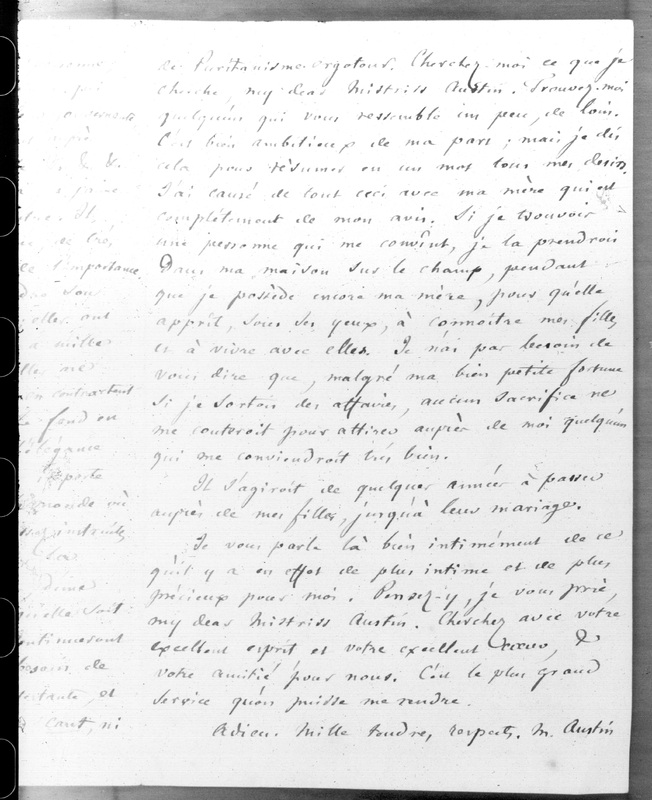 de Puritanisme ergoteur. Cherchez-moi ce que je
cherche, my dear Mistriss Austin. Trouvez-moi
quelqu'un qui vous ressemble un peu, de loin.
C'est bien ambitieux de ma part ; mais je dis
cela pour résumer en un mot tous mes desirs.
J'ai causé de tout ceci avec ma mère qui est
complètement de mon avis. Si je trouvois
une personne qui me convînt, je la prendrois
dans ma maison sur le champ, pendant
que je possède encore ma mère, pour qu'elle
apprît, sous ses yeux, à connoître mes filles
et à vivre avec elles. Je n'ai pas besoin de
vous dire que, malgré ma bien petite fortune
si je sortois des affaires, aucun sacrifice ne
me couteroit pour attirer auprès de moi quelqu'un
qui me conviendroit très bien.
Il s'agiroit de quelques années à passer
auprès de mes filles, jusqu'à leur mariage.
Je vous parle là bien intimément de ce
qu'il y a en effet de plus intime et de plus
précieux pour moi. Pensez-y, je vous prie,
my dear Mistriss Austin. Cherchez avec votre
excellent esprit et votre excellent cœur, &
votre amitié pour nous. C'est le plus grand
service qu'on puisse me rendre.
Adieu. Mille tendres respects. M. Austin